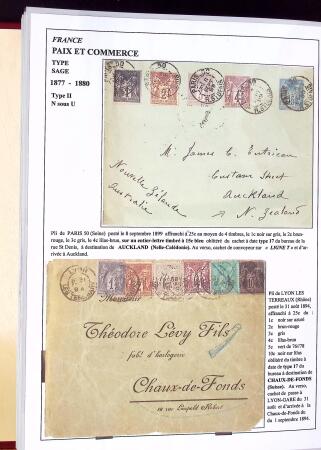 FRANCE
PAIX ET COMMERCE
TYPE
SAGE
1877 - 1880
Type II
N sous U
M. James C. Entrican
Customs Street
Auckland
N. Zealand
Nouvelle Zélande
Australie
Pli de PARIS 50 (Seine) posté le 8 septembre 1899 affranchi à 25c au moyen de 4 timbres, le 1c noir sur gris, le 2c brun-
rouge, le 3c gris, le 4c lilas-brun, sur un entier-lettre timbré à 15c bleu oblitéré du cachet à date type 17 du bureau de la
rue St Denis, à destination de AUCKLAND (Nelle-Calédonie). Au verso, cachet de convoyeur « LIGNE T » et d'ar-
rivée à Auckland.
Théodore Lévy Fils
fabt. d'horlogerie
Chaux-de-Fonds
rue Léopold Robert
Pli de LYON LES
TERREAUX (Rhône)
posté le 31 août 1894,
affranchi à 25c de
1c noir sur azuré
2c brun-rouge
3c gris
4c lilas-brun
5c vert de 76/78
10c noir sur lilas
oblitéré du timbre à
date de type 17 du
bureau à destination de
CHAUX-DE-FONDS
(Suisse). Au verso,
cachet de passe à
LYON-GARE du 31
août et d'arrivée à la
Chaux-de-Fonds du
du 1 septembre 1894.